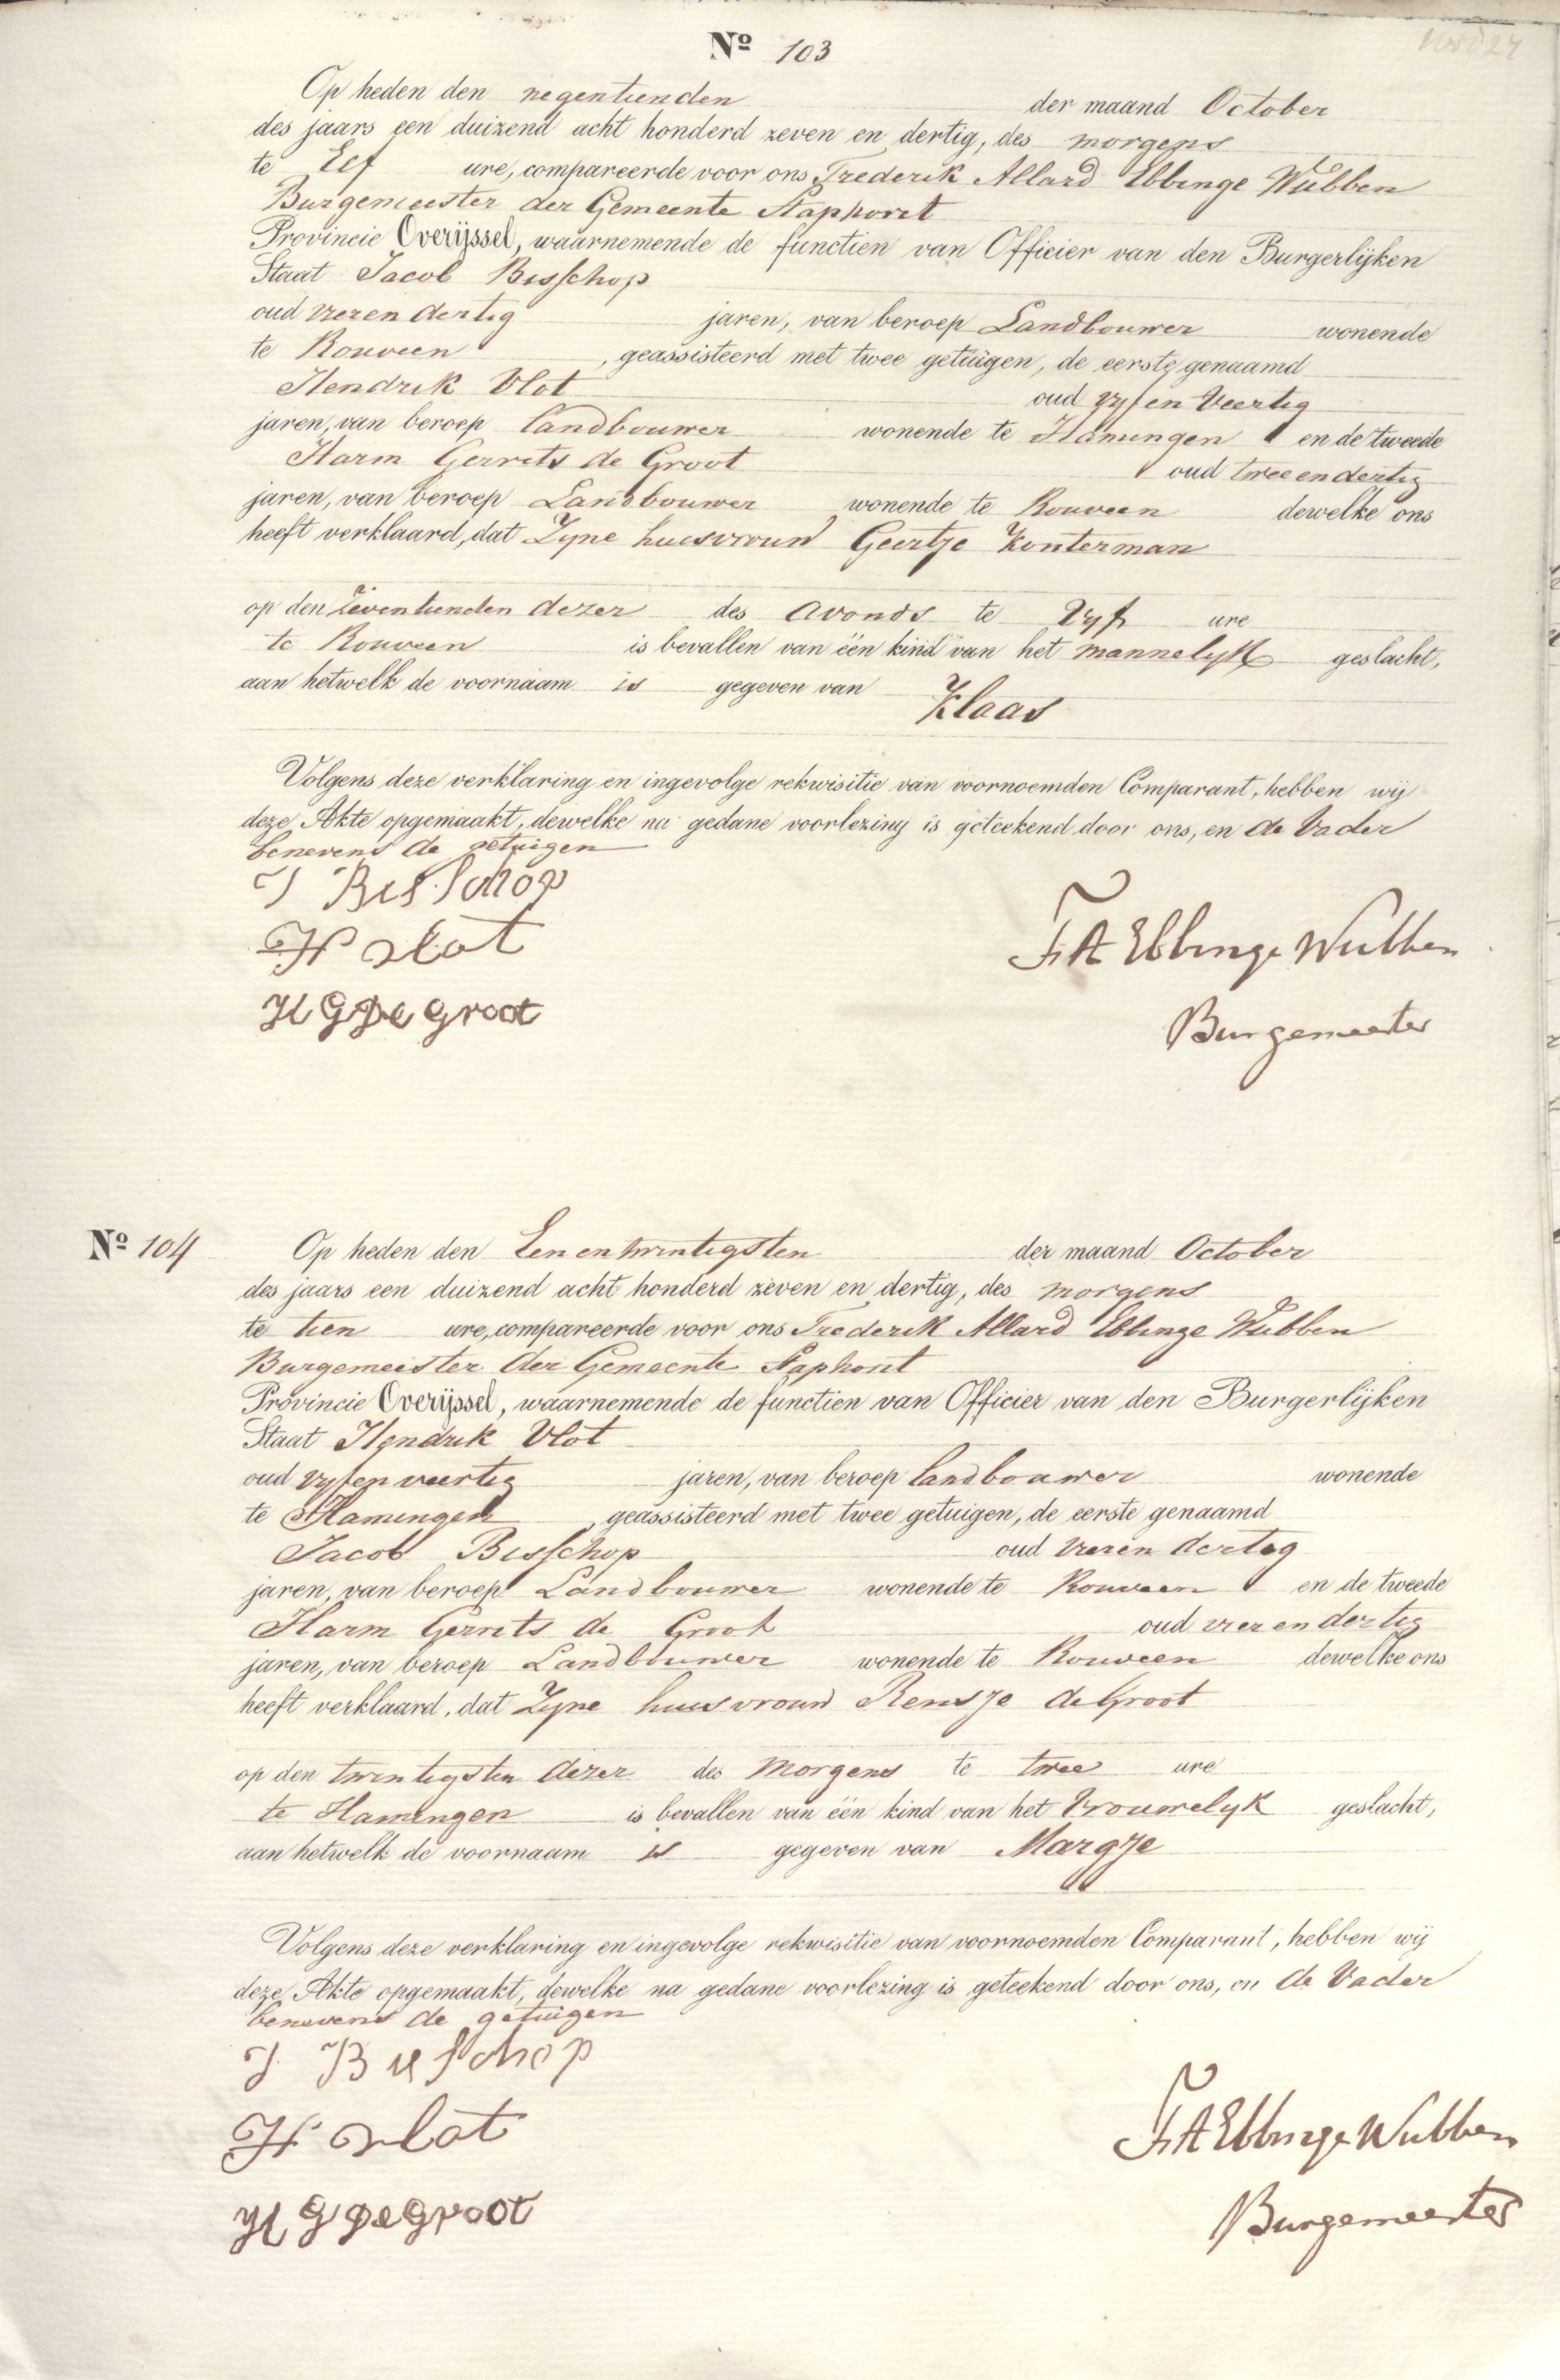 Nº 103
Op heden den negentienden der maand October
des jaars een duizend acht honderd zeven en dertig, des morgens
te Elf ure, compareerde voor ons Frederik Allard Ebbinge Wubben
Burgemeester der Gemeente Staphorst
Provincie Overijssel, waarnemende de functien van Officier van den Burgerlijken
Staat Jacob Bisschop
oud vier en dertig jaren, van beroep Landbouwer wonende
te Rouveen, geassisteerd met twee getuigen, de eerste genaamd
Hendrik Vlot oud vyf en Veertig
jaren, van beroep landbouwer wonende te Hamingen en de tweede
Harm Gerrits de Groot oud twee en dertig
jaren, van beroep Landbouwer wonende te Rouveen dewelke ons
heeft verklaard, dat Zyne huisvrouw Geertje Konterman
op den Zeventienden dezer des avonds te Vyf ure
te Rouveen is bevallen van één kind van het mannelyk geslacht,
aan hetwelk de voornaam is gegeven van
Klaas
Volgens deze verklaring en ingevolge rekwisitie van voornoemden Comparant, hebben wij
deze Akte opgemaakt, dewelke na gedane voorlezing is geteekend door ons, en de Vader
benevens de getuigen
J Bisschop
H vlot
F A Ebbinge Wubben
H G De Groot
Burgemeester
Nº 104
Op heden den Een en twintigsten der maand October
des jaars een duizend acht honderd zeven en dertig, des morgens
te tien ure, compareerde voor ons Frederik Allard Ebbinge Wubben
Burgemeester der Gemeente Staphorst
Provincie Overijssel, waarnemende de functien van Officier van den Burgerlijken
Staat Hendrik Vlot
oud vyf en veertig jaren, van beroep landbouwer wonende
te Hamingen, geassisteerd met twee getuigen, de eerste genaamd
Jacob Bisschop oud vier en dertig
jaren, van beroep Landbouwer wonende te Rouveen en de tweede
Harm Gerrits de Groot oud vier en dertig
jaren, van beroep Landbouwer wonende te Rouveen dewelke ons
heeft verklaard, dat Zyne huisvrouw Rensje de Groot
op den twintigsten dezer des Morgens te twee ure
te Hamingen is bevallen van één kind van het Vrouwelyk geslacht,
aan hetwelk de voornaam is gegeven van Margje
Volgens deze verklaring en ingevolge rekwisitie van voornoemden Comparant, hebben wij
deze Akte opgemaakt, dewelke na gedane voorlezing is geteekend door ons, en de Vader
benevens de getuigen
J Bisschop
H vlot
F A Ebbinge Wubben
H G De Groot
Burgemeester